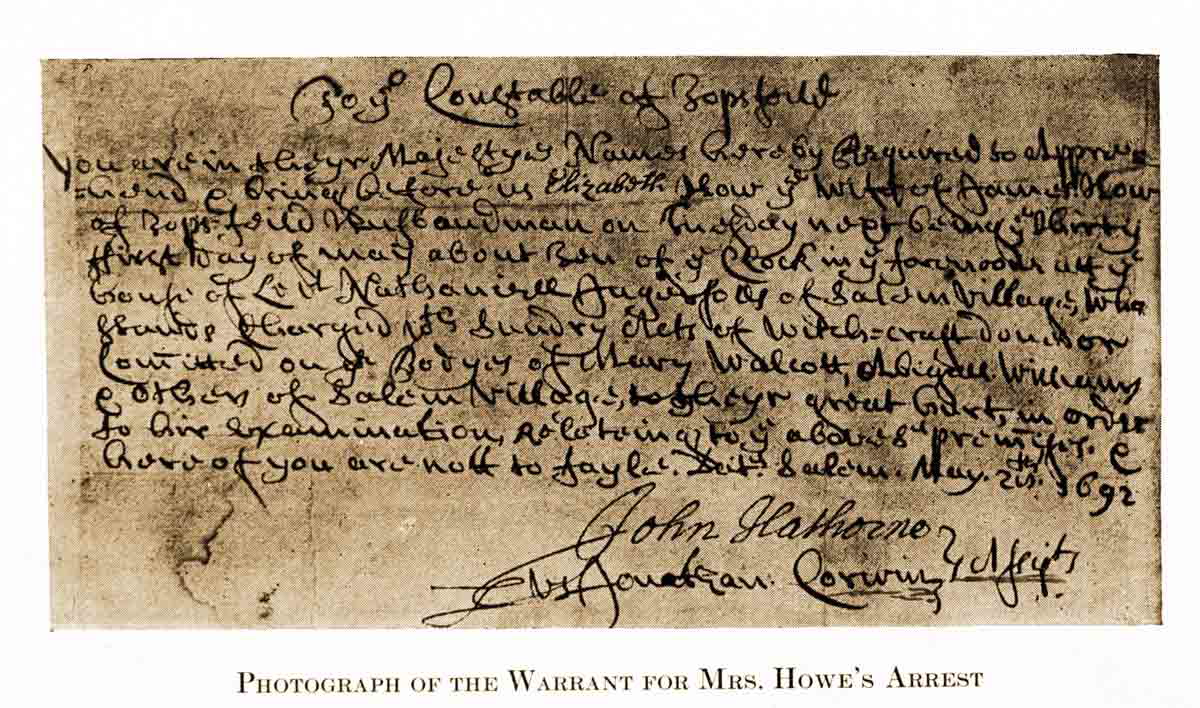 To yᵉ Constable of Topsfeild
You are in theyr Majestyes Names hereby Required to Appre=
=hend & bring before us Elizabeth How yᵉ wife of James How
of Topsfeild Husbandman on Tuesday next being yᵉ thirty
first day of may about Ten of yᵉ Clock in yᵉ forenoone att yᵉ
house of Leᵗ Nathaniell Ingersolls of Salem Village, Who
stands Charged wᵗʰ Sundry Acts of Witch=craft done or
Comitted on yᵉ Bodyes of Mary Walcott, Abigall Williams
& others of Salem Village, to theyr great hurt, in order
to her examination, Relateing to yᵉ abovesᵈ premises. &
hereof you are nott to fayle. Datᵈ Salem. May. 1692
John Hathorne
Jonathan. Corwin Assists
PHOTOGRAPH OF THE WARRANT FOR MRS. HOWE'S ARREST